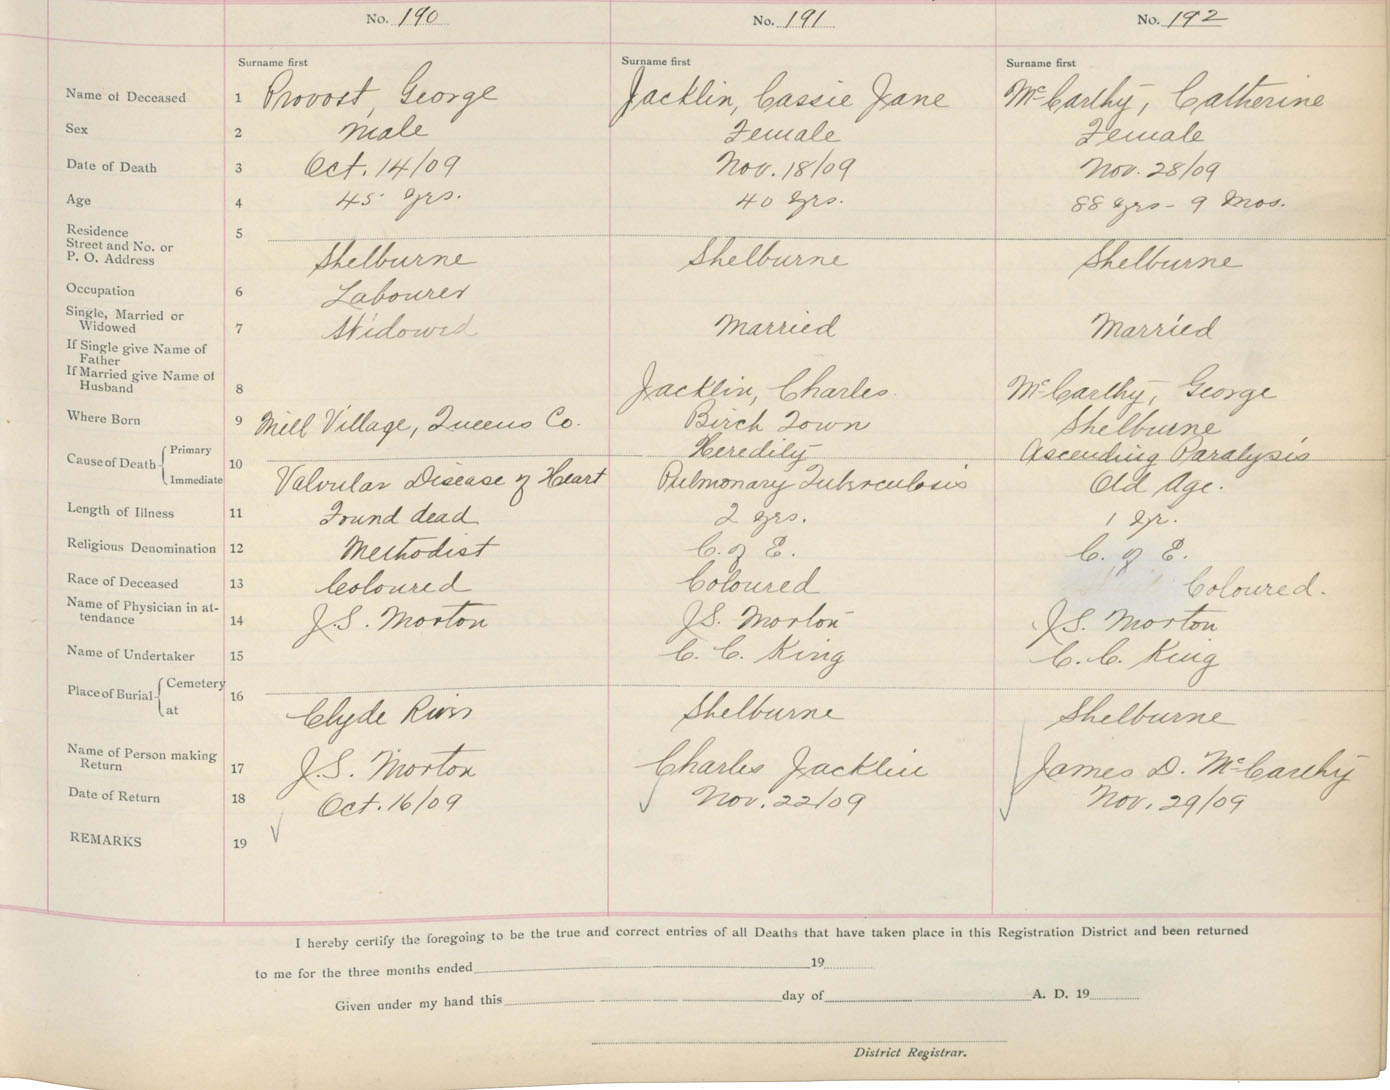 No. 190 No. 191 No. 192
Surname first Surname first Surname first
Name of Deceased 1 Provost, George Jacklin, Cassie Jane McCarthy, Catherine
Sex 2 Male Female Female
Date of Death 3 Oct. 14/09 Nov. 18/09 Nov. 28/09
Age 4 45 yrs. 40 yrs. 88 yrs - 9 Mos.
Residence 5
Street and No. or
P. O. Address Shelburne Shelburne Shelburne
Occupation 6 Labourer
Single, Married or
Widowed 7 Widowed Married Married
If Single give Name of
Father
If Married give Name of
Husband 8 Jacklin, Charles McCarthy, George
Where Born 9 Mill Village, Queens Co. Birch Town Shelburne
Cause of Death Primary 10 Heredity Ascending Paralysis
Immediate Valvular Disease of Heart Pulmonary Tuberculosis Old Age.
Length of Illness 11 Found dead 2 yrs. 1 yr.
Religious Denomination 12 Methodist C. of E. C. of E.
Race of Deceased 13 Coloured Coloured Coloured.
Name of Physician in at-
tendance 14 J.S. Morton J.S. Morton J.S. Morton
Name of Undertaker 15 C. C. King C. C. King
Place of Burial Cemetery 16
at Clyde River Shelburne Shelburne
Name of Person making
Return 17 J.S. Morton Charles Jacklin James D. McCarthy
Date of Return 18 Oct. 16/09 Nov. 22/09 Nov. 29/09
REMARKS 19
I hereby certify the foregoing to be the true and correct entries of all Deaths that have taken place in this Registration District and been returned
to me for the three months ended 19
Given under my hand this day of A. D. 19
District Registrar.